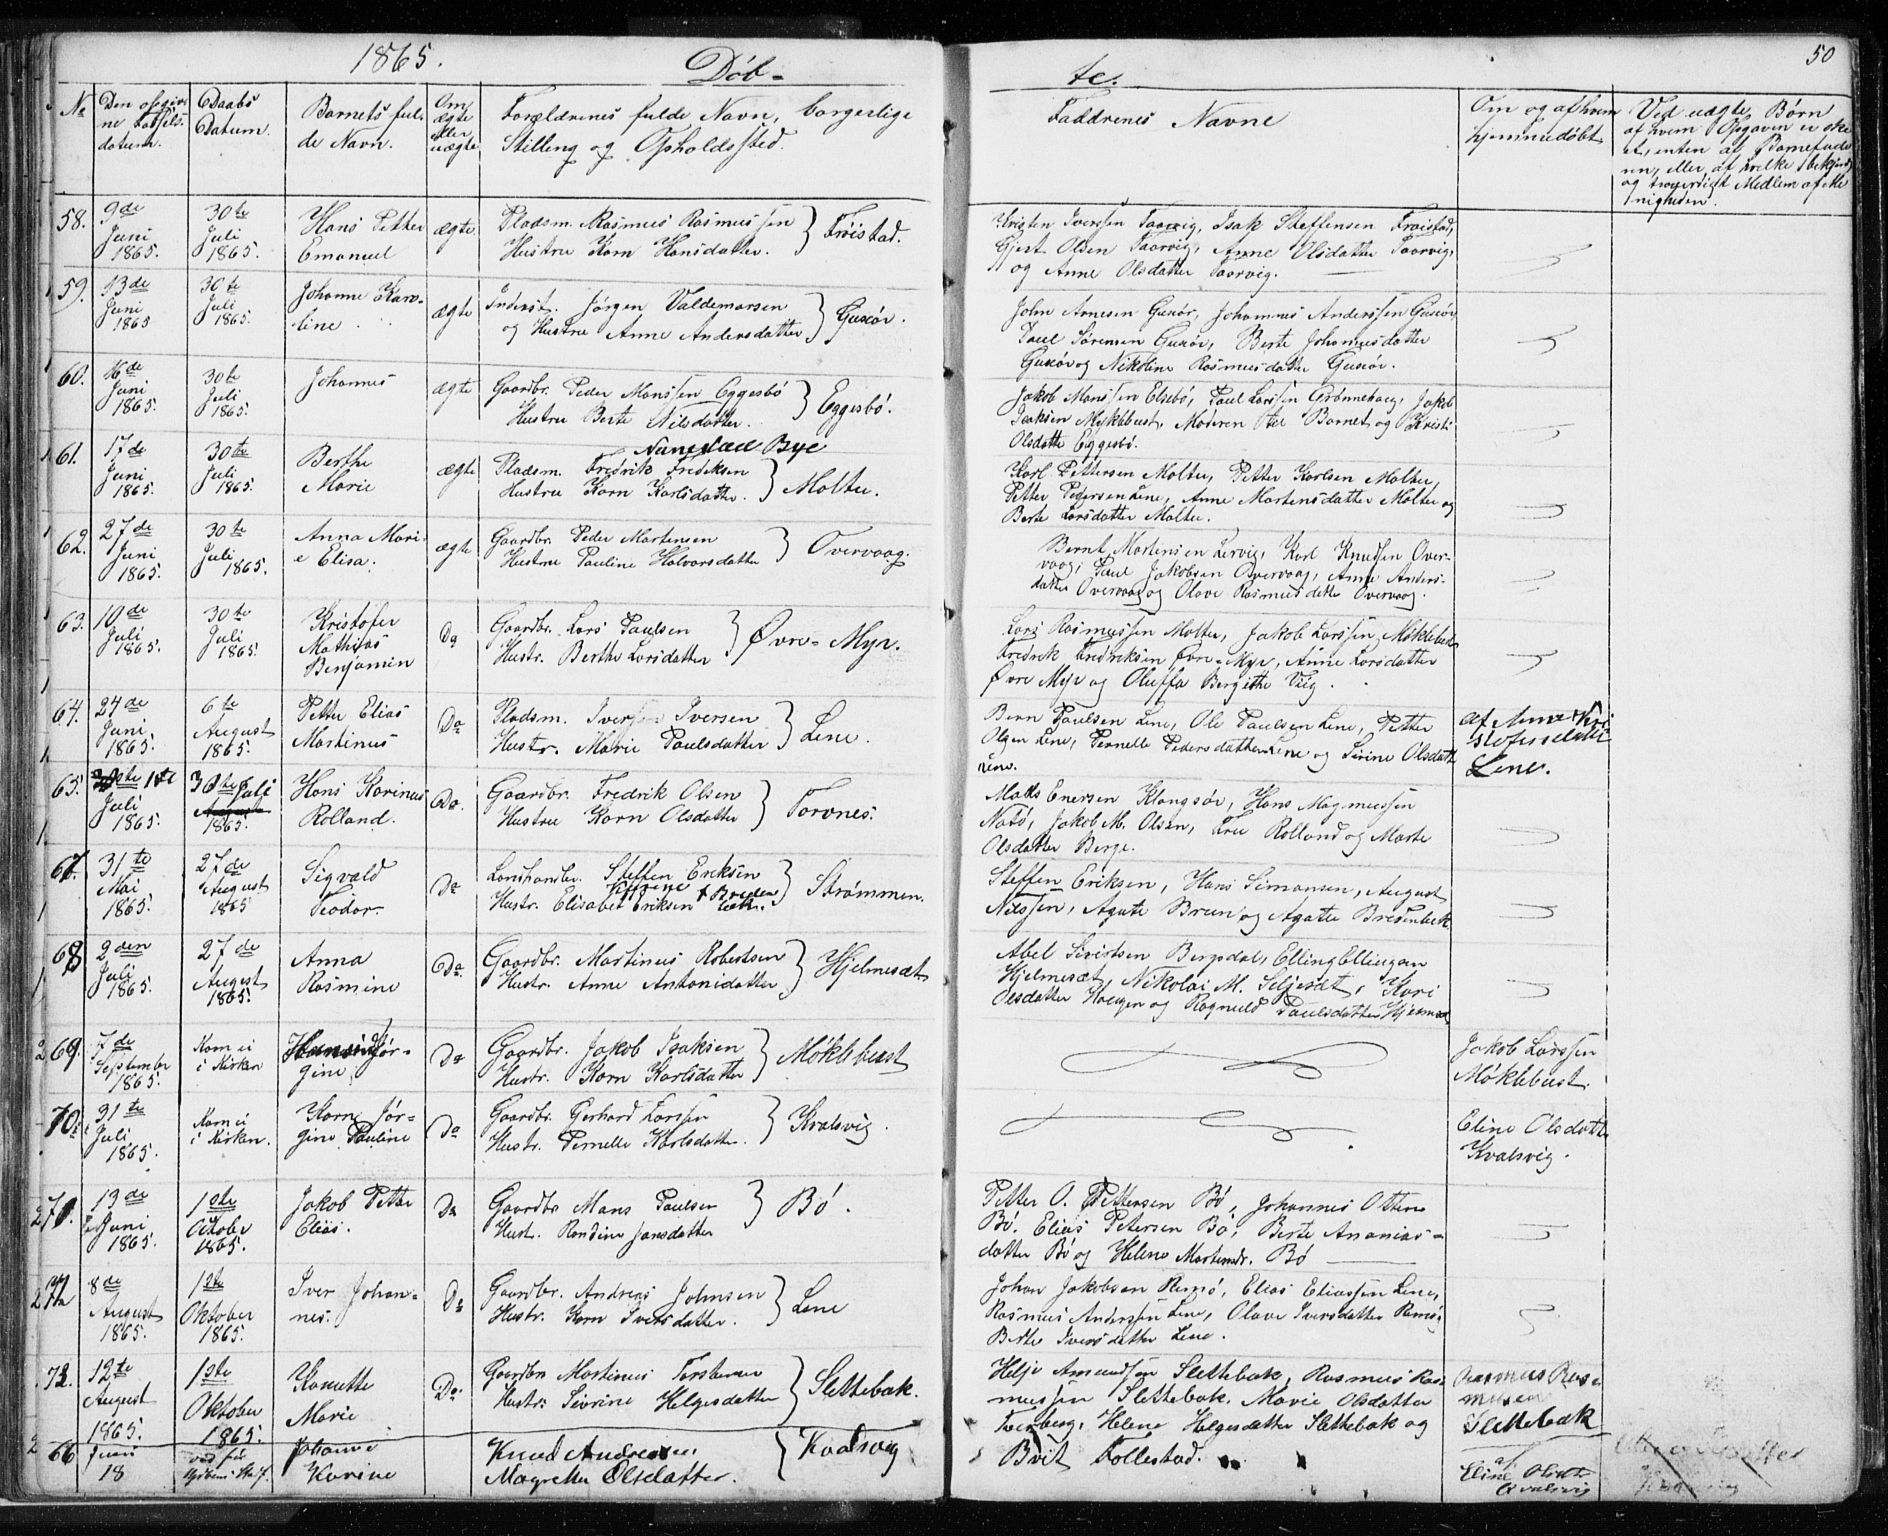 1865.
Döb-
te.
50
No
Den opgiv-
ne Fødsels-
datum.
Daabs
Datum.
Barnets ful-
de Navn.
Om
ægte
eller
uægte
Forældrenes fulde Navn, borgerlige
Stilling og Opholdssted.
Faddrenes Navne
Om og af hvem
hjemmedöbt
Ved uægte Børn
af hvem Opgaven er ske
et, enten af Barnefade
ren, eller af hvilke bekjendt
og troverdigt Medlem af Me
nigheden.
58.
9de
Juni
1865.
30te
Juli
1865.
Hans Petter
Emanuel
ægte
Pladsm. Rasmus Rasmussen
Hustru Karn Hansdatter.
Frøistad.
Kristen Iverssen Taarvig, Isak Steffensen Frøistad,
Gjert Olsen Taarvig, Anne Olsdatter Taarvig,
og Anne Olsdatter Taarvig.
59.
13de
Juni
1865
30te
Juli
1865.
Johanne Karo-
line
ægte
Inderst. Jørgen Valdemarsen
og Hustru Anne Andersdatter
Gurør.
John Arnesen Gurør, Johannes Anderssen Gurør,
Paul Sørensen Gurør, Berte Johannesdatter
Gurør og Nikoline Rasmusdatter Gurør.
60.
16de
Juni
1865.
30te
Juli
1865.
Johannes
ægte
Gaardbr. Peder Monssen Eggesbö
Hustru Berte Nilsdatter.
Eggesbö.
Jakob Monssen Elsebö, Paul Larssen Grönnehaug, Jakob
Isaksen Myklebust, Moderen til Barnet og Kristi
Olsdatter Eggesbö.
61.
17de
Juni
1865.
30te
Juli
1865.
Berthe
Marie
ægte
Pladsm. Fredrik Fredriksen
Hustru Karn Karlsdatter.
Moltu.
Karl Pettersen Moltu, Petter Karlsen Moltu,
Petter Pedersen Lene, Anne Martensdatter Moltu og
Berte Larsdatter Moltu.
62.
27de
Juni
1865.
30te
Juli
1865.
Anna Mari-
e Elisa.
ægte
Gaardbr. Peder Martensen
Hustru Pauline Halvorsdatter
Overvaag.
Bernt Martinsen Lervig, Karl Knudsen Over-
vaag, Paul Jakobsen Overvaag, Anne Anders-
datter Overvaag og Olave Rasmusdatter Overvaag.
63.
10de
Juli
1865.
30te
Juli
1865.
Kristofer
Mathias
Benjamin
Do
Gaardbr. Lars Paulsen
Hustr. Berthe Larsdatter
Øvre-Myr.
Lars Rasmussen Moltu, Jakob Larssen Møklebust,
Fredrik Fredriksen Øvre-Myr, Anne Larsdatter
Øvre Myr og Oluffa Bergithe Viig.
64.
24de
Juni
1865.
6te
August
1865.
Petter Elias
Martinus
Do
Pladsm. Iver Iversen
Hustr. Marie Paulsdatter
Lene.
Bern Paulsen Lene, Ole Paulsen Lene, Petter
Olsen Lene, Pernelle Pedersdatter Lene og Sivine Olsdatter
Lene.
af Anne Kri
stofersdatter
Lene.
65.
1te
Juli
1865.
30te Juli
1865.
Hans Karinus
Rolland.
Do.
Gaardbr. Fredrik Olsen
Hustru Karn Olsdatter
Torvnes.
Mats Enersen Klongsør, Hans Magnussen
Natö, Jakob M. Olsen, Fru Rolland og Marte
Olsdatter Berge.
67.
31te
Mai
1865.
27de
August
1865
Sigvald
Teodor.
Do
Landhandler. Steffen Eriksen
Hustr. Elisabet Eriksen
Strømmen.
Steffen Eriksen, Hans Simonsen, August
Nilssen, Agate Bruun og Agathe Bredenbek.
68.
2den
Juli
1865.
27de
August
1865.
Anna
Rasmine
Do
Gaardbr. Martinus Robertsen
Hustr. Anne Antonidatter
Hjelmesæt
Abel Sivertsen Bergsdal, Elling Ellingsen
Hjelmesæt, Nikolai M. Seljesæt, Kari
Olsdatter Haugen og Ragnild Paulsdatter Hjelmesæt.
69.
7de
September
1865.
Kom ei
i Kirken
Hansine Jør-
gine
Do
Gaardbr. Jakob Isaksen
Hustr. Karn Karlsdatter
Møklebust
Jakob Larssen
Møklebust.
70.
31te
Juli
1865.
Kom ei
i Kirken.
Karn Jør-
gine Pauline
Do
Gaardbr. Gerhard Larssen
Hustr. Pernelle Karlsdatter.
Kvalsvig.
Eline Olsdatter
Kvalsvig.
71.
13de
Juni
1865.
1ste
October
1865.
Jakob Petter
Elias.
Do
Gaardbr. Mons Paulsen
Hust. Randine Jansdatter
Bö.
Petter O. Pettersen Bö, Johannes Otten
Bö, Elias Petersen Bö, Berte Ananias-
datter Bö og Helene Martensdr. Bö
72
8de
August
1865.
1ste
Oktober
1865.
Iver Johan-
nes.
Do
Gaardbr. Andreas Johnsen
Hustr. Karn Iversdatter.
Lene
Johan Jakobsen Remö, Elias Eliassen Lene,
Rasmus Anderssen Lene, Olave Iversdatter Remö,
Berte Iversdatter Lene.
73.
12te
August
1865.
1ste
Oktober
1865.
Kanutte
Marie
Do.
Gaardbr. Martinus Torstensen
Hustr. Sivrine Helgesdatter
Slettebak.
Helje Amundsen Slettebak, Rasmus Ras-
mussen Slettebak, Marie Olsdatter
Tverberg, Helene Helgesdatter Slettebak og
Brit Follestad.
Rasmus Ras-
mussen
Slettebak
66
Juni
18
Johanne
Karine
Knud Andreasen
Magrethe Olsdatter.
Kvalsvig
af
Eline Olsdtr
Qvalsvig